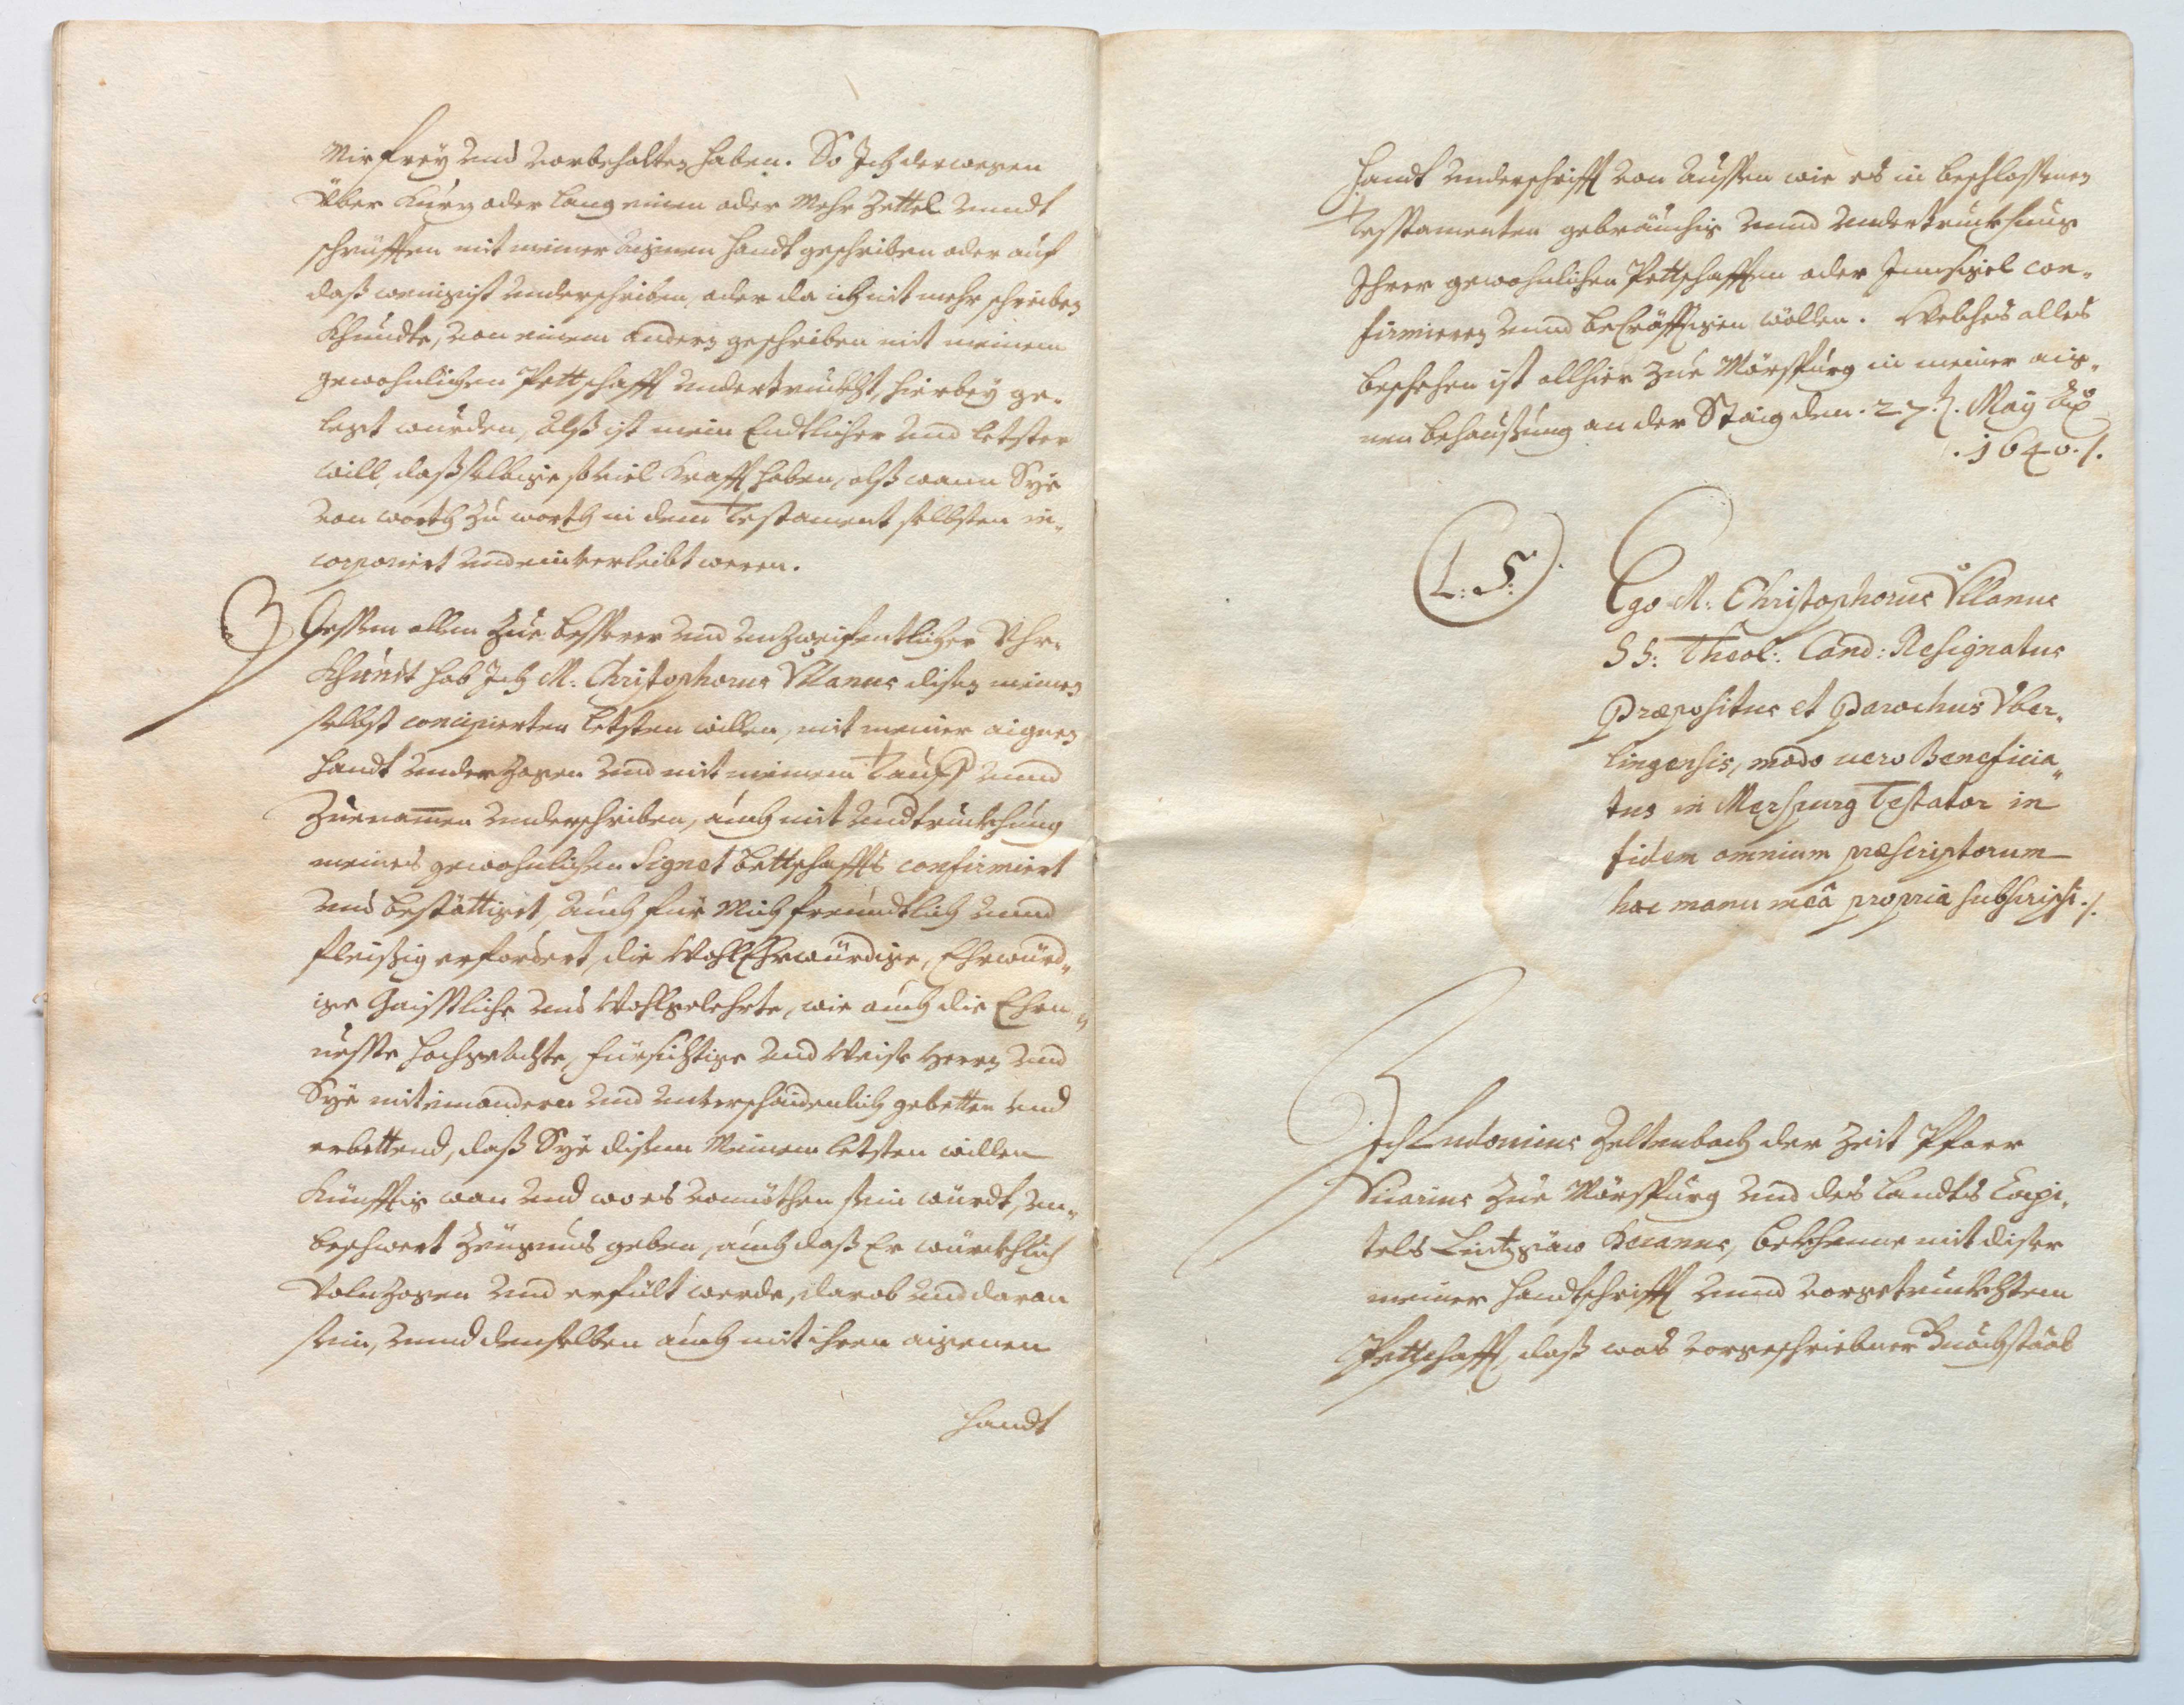 Mir frey und vorbehalten haben. So Ich derwegen
Über kurz oder lang einen oder Mehr Zettel unndt
schrüfften mit meiner aignen handt geschriben oder auf
daß wenigist underschriben, oder da ich nit mehr schreiben
khundte, von einem andern geschriben mit meinem
gewohnlichen Pettschafft undertruckht, hierbey ge-
legt wurden, Alß ist mein Endtlicher und letster
will, daß selbige so viel Krafft haben, alß wann Sye
von worth zu worth in dem Testament selbsten in-
corporiert und einverleibt weren.
Dessen allen Zue besserer und unzweifentlicher Uhr-
khundt hab Ich M. Christophorus Ullanus disen meinen
selbst concipierten letsten willen, mit meiner aignen
handt underzogen und mit meinem Tauff und
Zuenamen underschriben, auch mit undtruckhung
meines gewohnlichen Signet bettschaffts confirmiert
und bestättiget, auch für Mich freundtlich unnd
fleissig erfordert, die WohlEhrwürdige, Ehrwürd-
ige Gaistliche und Wohlgelehrte, wie auch die Ehrn-
veste hochgeachte, fürsichtige und Weise Herrn und
Sye miteinandern und unterschaidenlich gebetten und
erbettend, daß Sye disem Meinem letsten willen
künfftig wan und wo es vonnöthen sein wurdt, un-
beschwert Zeugnus geben, auch daß Er würckhlich
Volnzogen und erfült werde, darob und daran
sein, unnd denselben auch mit ihren aigenen
handt
handt underschrifft von aussen wie es in beschlossenen
Testamenten gebräuchig unnd undertruckhung
Ihrer gewohnlichen Pettschafften oder Innsigel con-
firmieren unnd bekräfftigen wöllen. Welches alles
beschehen ist allhier zue Mörspurg in meiner aig-
nen behaussung an der Staig den. 27. t. May Ao
.1640./.
L: S:
Ego M. Christophorus Ullanus
SS: Theol: Cand: Resignatus
Præpositus et Parochus Uber-
lingensis, modo vero Beneficia-
tus in Merspurg Testator in
fidem omnium præscriptorum
hac manu meâ propria subscripsi./.
Ich Ludovicus Zeltenbach der Zeit Pfarr
Vicarius zue Mörspurg und des landts Capi-
tels Lintzgäw Decanus, bekhenne mit diser
meiner handtschrifft unnd vorgetruckhtem
Pettschafft, daß was vorgeschribner Buochstaab